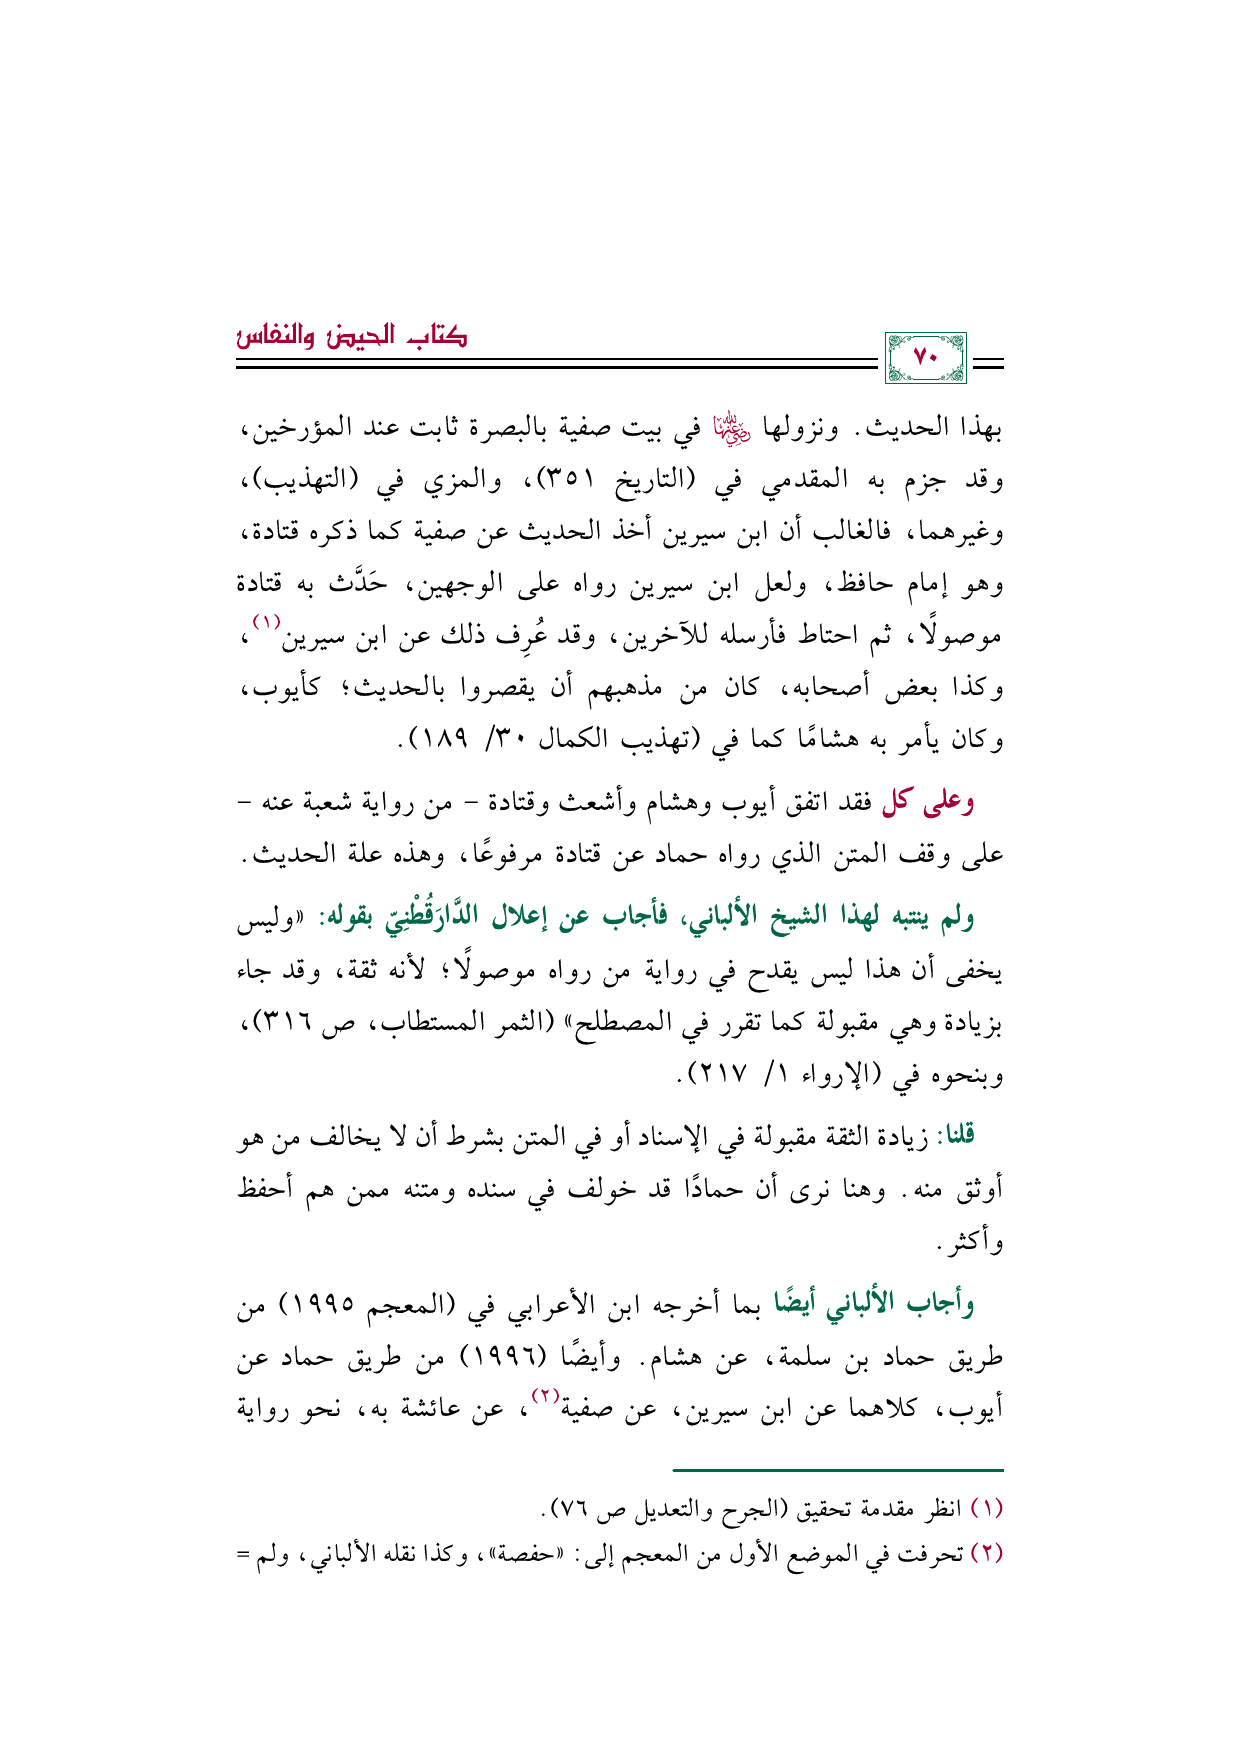 كتاب الحيض والنفاس
٧٠
بهذا الحديث. ونزولها رضي الله عنها في بيت صفية بالبصرة ثابت عند المؤرخين،
وقد جزم به المقدمي في (التاريخ ٣٥١)، والمزي في (التهذيب)،
وغيرهما، فالغالب أن ابن سيرين أخذ الحديث عن صفية كما ذكره قتادة،
وهو إمام حافظ، ولعل ابن سيرين رواه على الوجهين، حَدَّث به قتادة
موصولًا، ثم احتاط فأرسله للآخرين، وقد عُرِف ذلك عن ابن سيرين(١)،
وكذا بعض أصحابه، كان من مذهبهم أن يقصروا بالحديث؛ كأيوب،
وكان يأمر به هشامًا كما في (تهذيب الكمال ٣٠/ ١٨٩).
وعلى كل فقد اتفق أيوب وهشام وأشعث وقتادة - من رواية شعبة عنه -
على وقف المتن الذي رواه حماد عن قتادة مرفوعًا، وهذه علة الحديث.
ولم ينتبه لهذا الشيخ الألباني، فأجاب عن إعلال الدَّارَقُطْنِيّ بقوله: «وليس
يخفى أن هذا ليس يقدح في رواية من رواه موصولًا؛ لأنه ثقة، وقد جاء
بزيادة وهي مقبولة كما تقرر في المصطلح» (الثمر المستطاب، ص ٣١٦)،
وبنحوه في (الإرواء ١/ ٢١٧).
قلنا: زيادة الثقة مقبولة في الإسناد أو في المتن بشرط أن لا يخالف من هو
أوثق منه. وهنا نرى أن حمادًا قد خولف في سنده ومتنه ممن هم أحفظ
وأكثر.
وأجاب الألباني أيضًا بما أخرجه ابن الأعرابي في (المعجم ١٩٩٥) من
طريق حماد بن سلمة، عن هشام. وأيضًا (١٩٩٦) من طريق حماد عن
أيوب، كلاهما عن ابن سيرين، عن صفية(٢)، عن عائشة به، نحو رواية
(١) انظر مقدمة تحقيق (الجرح والتعديل ص ٧٦).
(٢) تحرفت في الموضع الأول من المعجم إلى: «حفصة»، وكذا نقله الألباني، ولم =